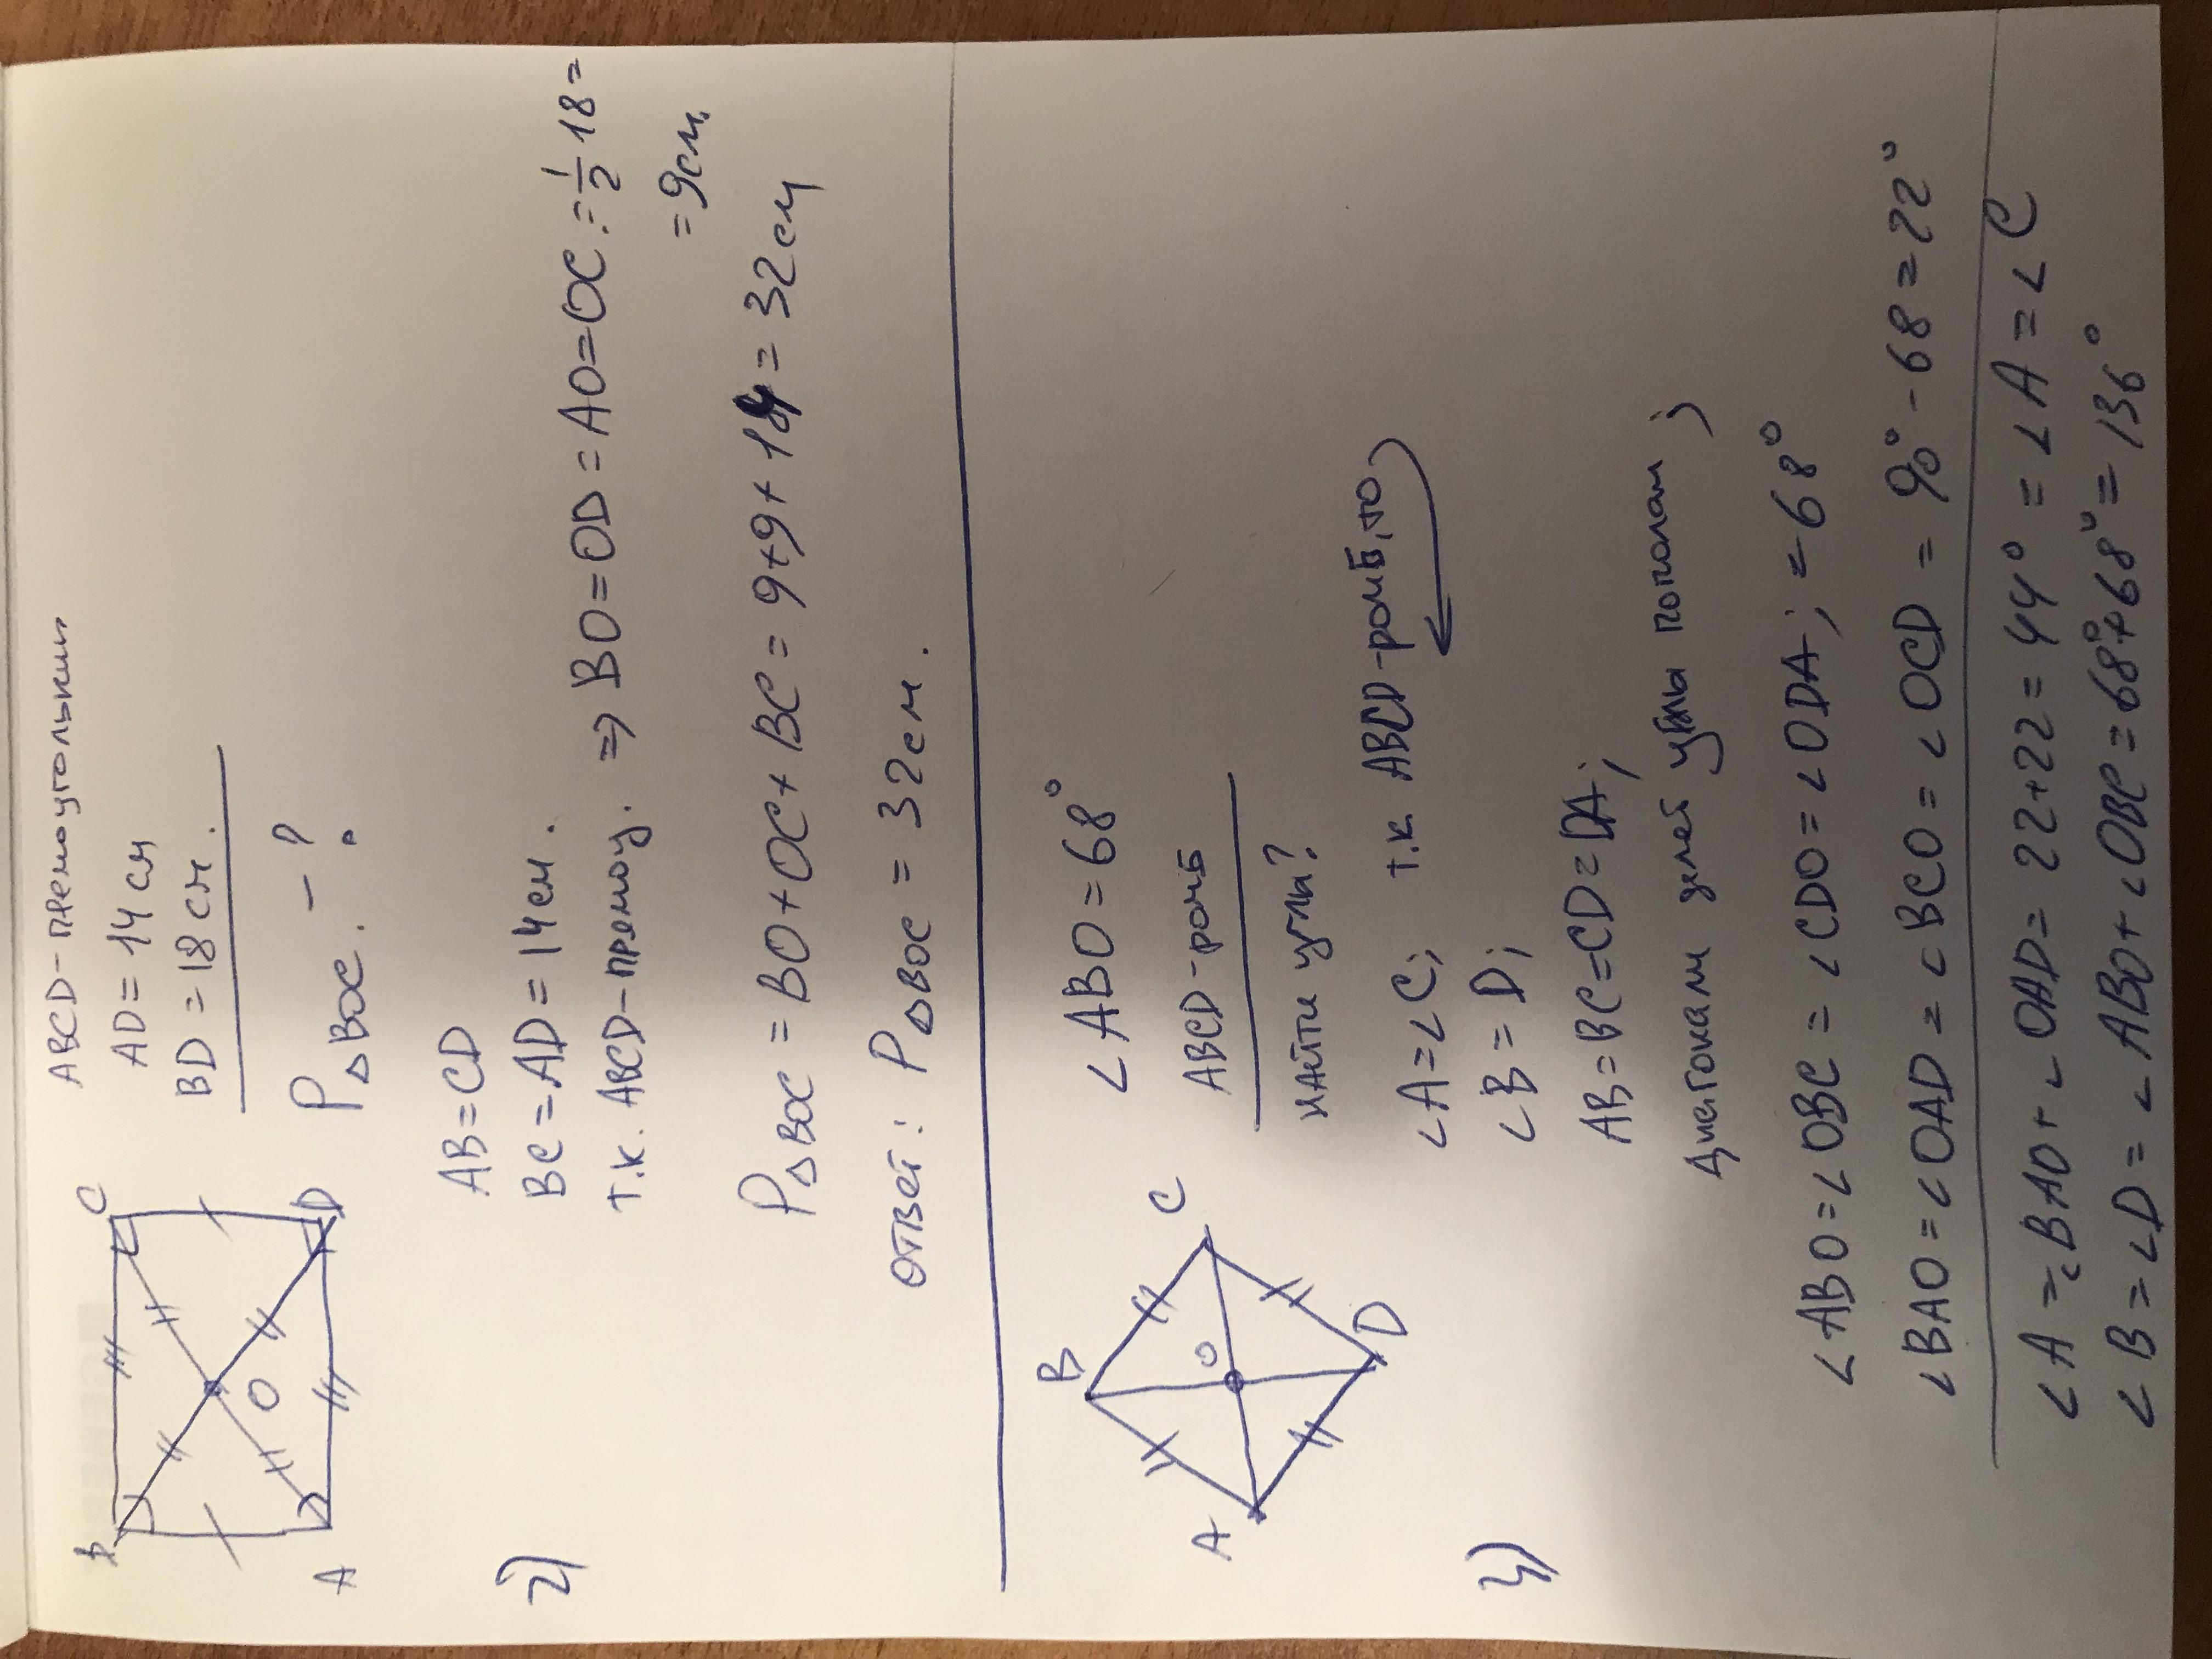 B
C
A
D
O
ABCD-прямоугольник
AD=14см
BD=18см.
P△BOC. – ?
2)
AB=CD
BC=AD=14см.
т.к. ABCD-прямоу. ⇒ BO=OD=AO=OC.=1/2 18=
=9см.
P△BOC=BO+OC+BC=9+9+14=32см
ответ: P△BOC=32см.
B
C
A
D
O
∠ABO=68°
ABCD-ромб
найти углы?
4)
∠A=∠C; т.к ABCD-ромб, то
∠B=D;
AB=BC=CD=DA;
Диагонами делят углы пополам;
∠ABO=∠OBC=∠CDO=∠ODA; =68°
∠BAO=∠OAD=∠BCO=∠OCD=90°-68=22°
∠A=∠BAO+∠OAD=22+22=44°=∠A=∠C
∠B=∠D=∠ABO+∠OBC=68°+68°=136°